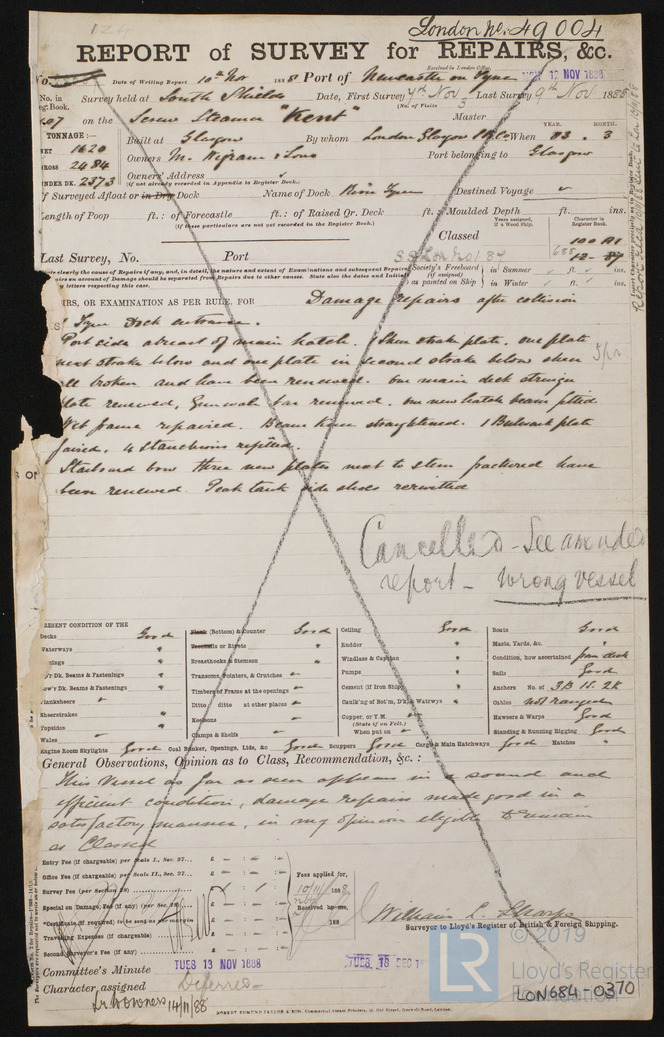 London No. 49004
REPORT of SURVEY for REPAIRS, &c.
Received in London Office,
Date of Writing Report 10th Nov 1888 Port of Newcastle on Tyne NOV 12 NOV 1888
No. in Survey held at South Shields Date, First Survey 7th Nov Last Survey 9th Nov 1888
(No. of Visits 3
on the Screw Steamer "Kent" Master
TONNAGE:— Built at Glasgow By whom London Glasgow When 83. 3
YEAR. MONTH.
NET 1620
GROSS 2484 Owners M. Wigram & Sons Port belonging to Glasgow
UNDER DK. 2373 Owners' Address
(if not already recorded in Appendix to Register Book.)
If Surveyed Afloat or in Dry Dock Name of Dock River Tyne Destined Voyage
Length of Poop ft.: of Forecastle ft.: of Raised Qr. Deck ft.: Moulded Depth ft. ins.
(If these particulars are not yet recorded in the Register Book.)
Years assigned, if a Wood Ship. Character in Register Book.
Classed 100 A1
Last Survey, No. Port 12-87
Society's Freeboard (if assigned) as painted on Ship in Summer ft. ins.
in Winter ft. ins.
REPAIRS, OR EXAMINATION AS PER RULE, FOR Damage repairs after collision
Tyne Dock entrance.
Port side abreast of main hatch. 1 Sheer strake plate. one plate
next strake below and one plate in second strake below sheer
all broken and have been renewed. one main deck stringer
plate renewed, Gunwale bar renewed. one new hatch beam fitted
Web frame repaired. Beam knee straightened. 1 Bulwark plate
faired, 4 Stanchions refitted.
Starboard bow three new plates next to stem fractured have
been renewed Peak tank side shells reriveted
Cancelled - See amended
report - wrong vessel
PRESENT CONDITION OF THE
Decks Good
Waterways "
Up'r Dk. Beams & Fastenings "
Low'r Dk. Beams & Fastenings "
Planksheers
Sheerstrakes "
Topsides "
Wales
Plank (Bottom) & Counter Good
Treenails or Rivets "
Breasthooks & Stemson "
Transoms, Pointers, & Crutches
Timbers of Frame at the openings
Ditto ditto at other places
Keelsons
Clamps & Shelfs
Ceiling Good
Rudder "
Windlass & Capstan "
Pumps "
Cement (if Iron Ship) "
Caulk'ng of Bot'm, D'k, & Watrwys "
Copper, or Y.M.
(State if on Felt.)
When put on
Boats Good
Masts, Yards, &c. "
Condition, how ascertained from deck
Sails Good
Anchors No. of 3B 1S. 2K
Cables not ranged
Hawsers & Warps Good
Standing & Running Rigging Good
Engine Room Skylights Good Coal Bunker, Openings, Lids, &c Good Scuppers Good Cargo & Main Hatchways Good Hatches "
General Observations, Opinion as to Class, Recommendation, &c.:
This Vessel as far as seen appears in a sound and
efficient condition, damage repairs made good in a
satisfactory manner, in my opinion eligible to remain
as Classed
Entry Fee (if chargeable) per Scale I., Sec. 27...
Office Fee (if chargeable) per Scale II., Sec. 27...
Survey Fee (per Section 28)
Special or Damage Fee (if any) (per Sec. 28)
*Certificate (if required) to be sent as per margin
Travelling Expenses (if chargeable)
Second Surveyor's Fee (if any)
Fees applied for,
10/11/1888
Received by me,
188
William L. Sharpe
Surveyor to Lloyd's Register of British & Foreign Shipping.
Committee's Minute TUES 13 NOV 1888 TUES 18 DEC 1
Character assigned Deferred
14/11/88
ROBERT EDMUND TAYLOR & SON, Commercial Steam Printers, 19, Old Street, Goswell Road, London.
LR
© 2019
Lloyd's Register
Foundation
LON684-0370